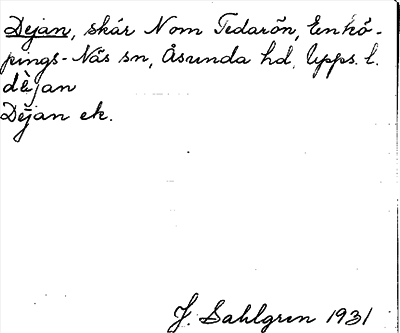 Dejan, skär N om Tedarön, Enkö-
pings-Näs sn, Åsunda hd, Upps. l.
dèjan
Dējan ek.
J. Sahlgren 1931